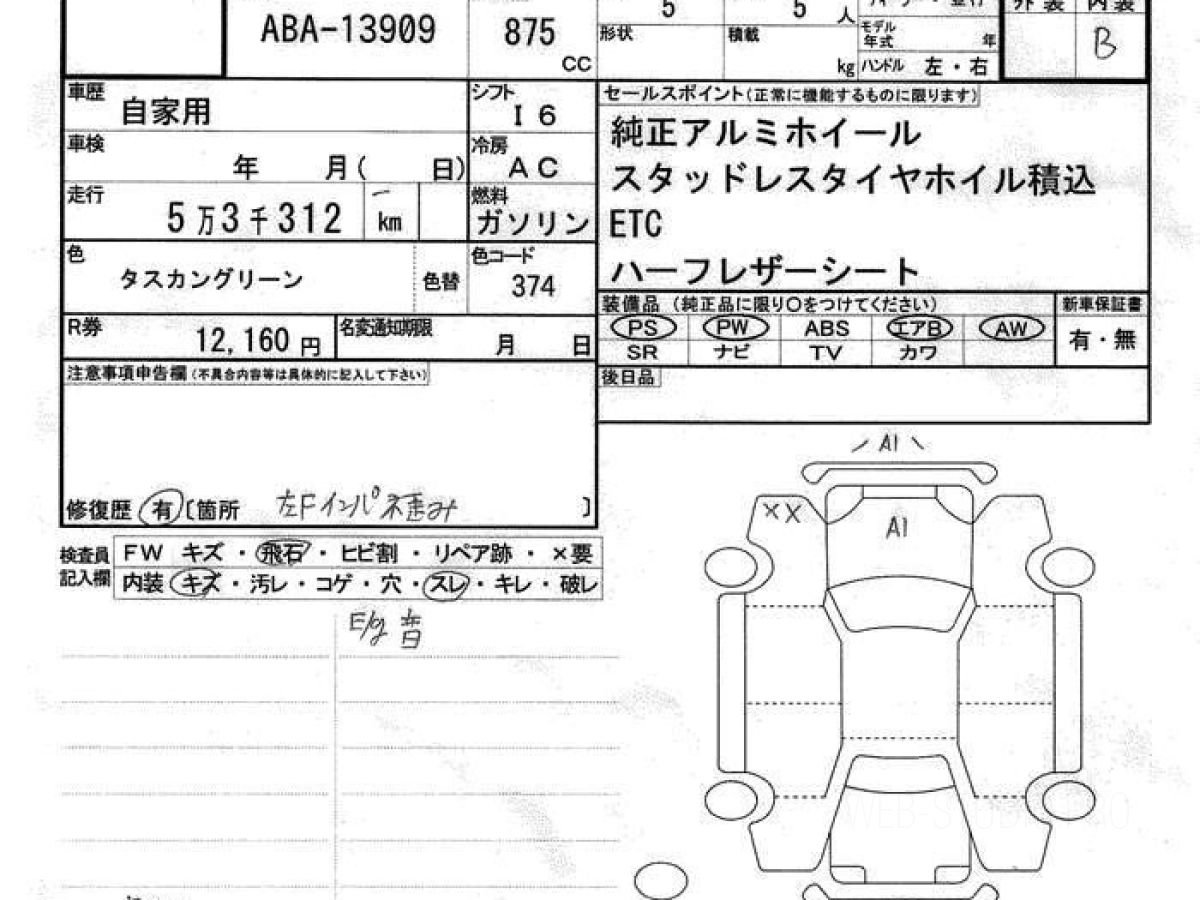 5 5 人
ABA-13909 875 CC
形状 積載 kg
モデル年式 年
ハンドル 左・右
外装 内装
B
車歴 自家用 シフト I 6
車検 年 月( 日) 冷房 AC
走行 5万3千312 km 燃料 ガソリン
色 タスカングリーン 色替 色コード 374
R券 12,160 円 名変通知期限 月 日
セールスポイント(正常に機能するものに限ります)
純正アルミホイール
スタッドレスタイヤホイル積込
ETC
ハーフレザーシート
装備品 (純正品に限り○をつけてください) 新車保証書
PS PW ABS エアB AW 有・無
SR ナビ TV カワ
後日品
注意事項申告欄(不具合内容等は具体的に記入して下さい)
修復歴 有 [箇所 左Fインパネ歪み ]
検査員記入欄
FW キズ・飛石・ヒビ割・リペア跡・×要
内装 キズ・汚レ・コゲ・穴・スレ・キレ・破レ
E/g 音
A1
XX
A1
WEB-STUDIO.IO